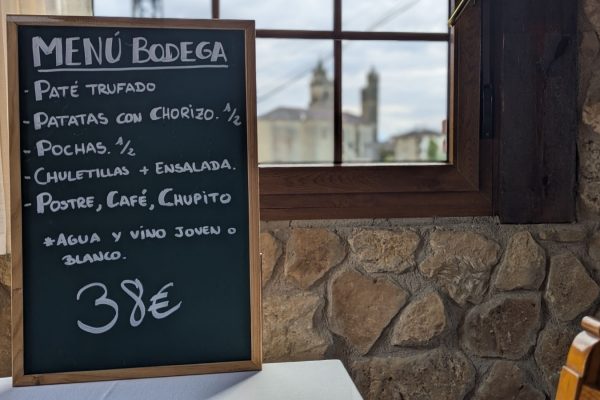 MENÚ BODEGA
- PATÉ TRUFADO
- PATATAS CON CHORIZO. 1/2
- POCHAS. 1/2
- CHULETILLAS + ENSALADA.
- POSTRE, CAFÉ, CHUPITO
*AGUA Y VINO JOVEN O
BLANCO.
38€